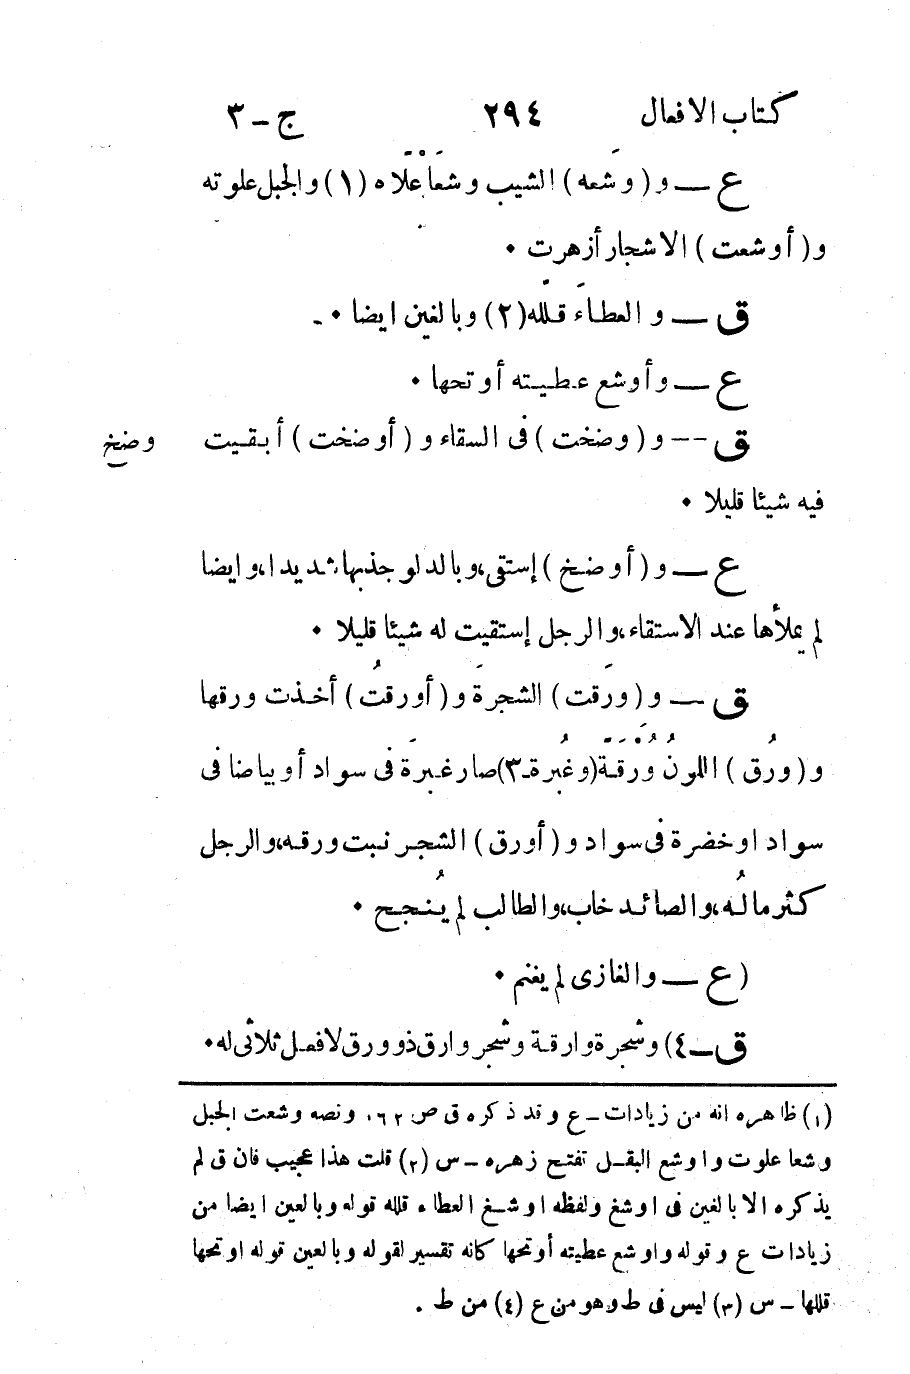 كتاب الافعال ٢٩٤ ج - ٣
ع — و ( وشَعه ) الشيب وشعاً علاه (١) والجبل علوته
و ( أوشعت ) الاشجار أزهرت ٠
ق — و العطاءَ قلله (٢) وبالغين ايضا ٠ -
ع — وأوشع عطيته أوتحها ٠
ق -- و ( وضخت ) فى السقاء و ( أوضخت ) أبقيت وضخ
فيه شيئا قليلا ٠
ع — و ( أوضخ ) إستقى، وبالدلو جذبها شديدا، وايضا
لم يملأها عند الاستقاء، والرجل إستقيت له شيئا قليلا ٠
ق — و ( ورَقت ) الشجرة و ( أورقتُ ) أخذت ورقها
و ( ورُق ) اللونُ وُرقةً (وغُبرة-٣) صار غبرَة فى سواد أوبياضا فى
سواد اوخضرة فى سواد و ( أورق ) الشجر نبت ورقه، والرجل
كثر مالُه، والصائد خاب، والطالب لم يُنجح ٠
( ع — والغازى لم يغنم ٠
ق - ٤) وشجرة وارقة وشجر وارق ذو ورق لا فعل ثلاثى له ٠
(١) ظاهره انه من زيادات - ع وقد ذكره ق ص ٠٦٢ ونصه وشعت الجبل
وشعا علوت واوشع البقل تفتح زهره - س (٢) قلت هذا عجيب فان ق لم
يذكره الا بالغين فى اوشغ ولفظه اوشغ العطاء قلله قوله وبالعين ايضا من
زيادات ع وقوله واوشع عطيته أوتحها كانه تفسير لقوله وبالعين قوله اوتحها
قللها - س (٣) ليس فى ط وهو من ع (٤) من ط .